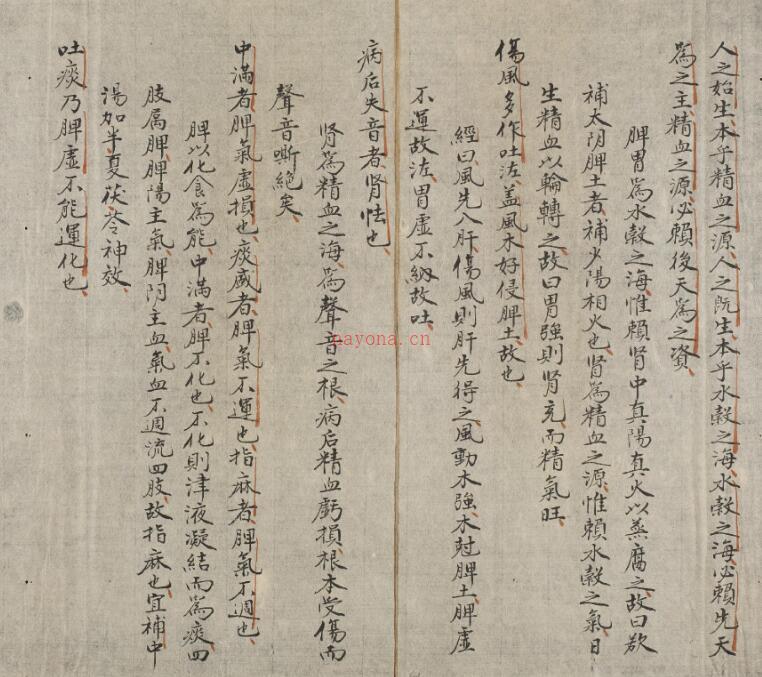 人之始生、本乎精血之源、人之既生、本乎水穀之海、水穀之海、必賴先天
為之主、精血之源、必賴後天為之資、
脾胃為水穀之海、惟賴腎中真陽真火以蒸腐之、故曰欲
補太阴脾土者、補少陽相火也、腎為精血之源、惟賴水穀之氣、日
生精血以輪轉之、故曰胃強則腎充、而精氣旺、
傷風多作吐泻、盖風木好侵脾土故也、
經曰風先入肝、傷風則肝先得之、風動木強、木尅脾土、脾虛
不運故泻、胃虛不納故吐、
病后失音者、肾怯也、
肾為精血之海、為聲音之根、病后精血虧損、根本受傷、而
聲音嘶絕矣、
中滿者、脾氣虛損也、痰盛者、脾氣不運也、指麻者、脾氣不週也、
脾以化食為能、中滿者、脾不化也、不化則津液凝結而為痰、四
肢属脾、脾陽主氣、脾阴主血、氣血不週流四肢、故指麻也、宜補中
湯加半夏茯苓神效、
吐痰乃脾虛不能運化也、
nayona.cn